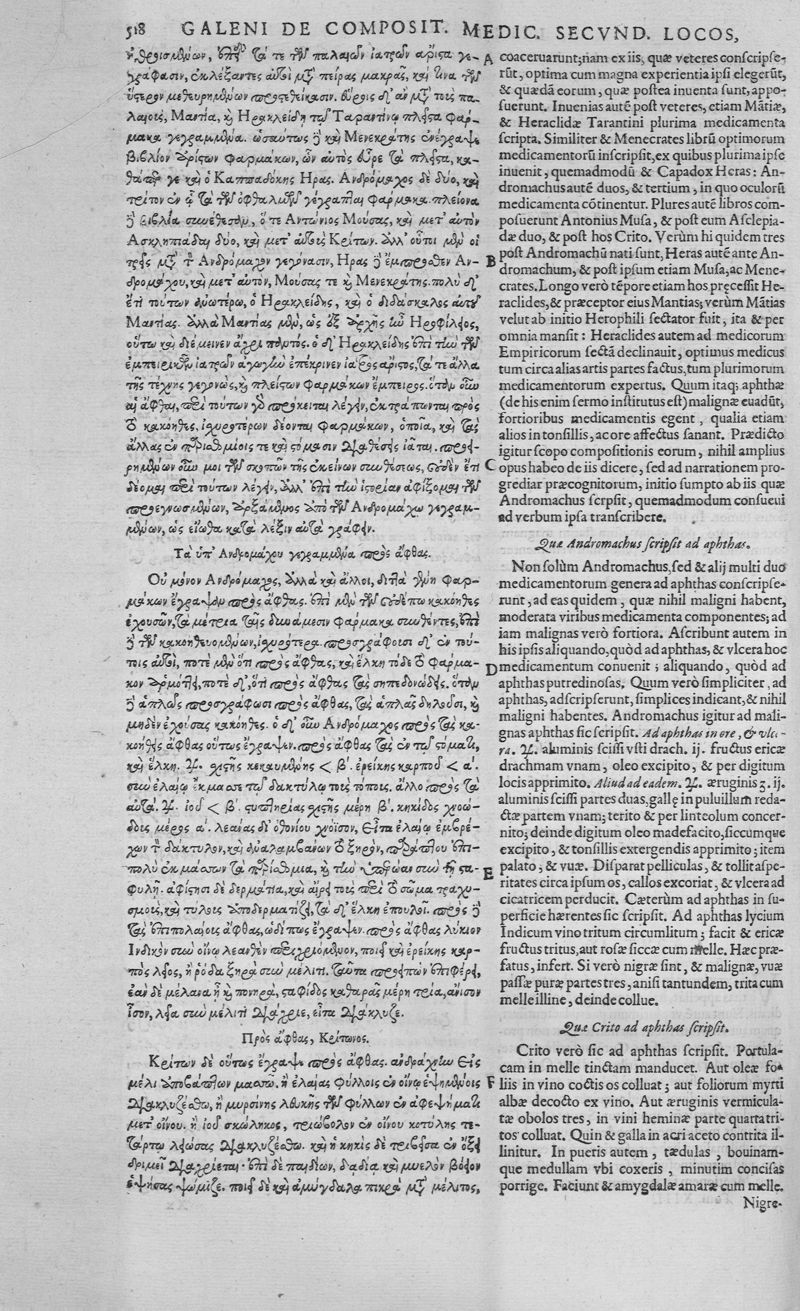 518 GALENI DE COMPOSIT. MEDIC. SECVND. LOCOS,
τά τε τῶν παλαιῶν ἰατρῶν ἄριστα γε-
γράφασιν, ἐκλέξαντες αὐτοὶ μετὰ πείρας μακρᾶς, καὶ τινα τῶν
ὕστερον μεθευρημένων προστεθείκασιν. εὕροις δ' ἂν μετὰ τοὺς πα-
λαιοὺς, Μαντία, καὶ Ἡρακλείδῃ τῷ Ταραντίνῳ πλεῖστα φάρ-
μακα γεγραμμένα. ὡσαύτως δὲ καὶ Μενεκράτης ἐνέγραψε
βιβλίον ἀρίστων φαρμάκων, ὧν αὐτὸς εὗρε τὰ πλεῖστα, κα-
θάπερ γε καὶ ὁ Καππαδόκης Ἥρας. Ἀνδρόμαχος δὲ δύο, καὶ
τρίτον ἐν ᾧ τὰ τῶν ὀφθαλμῶν γέγραπται φάρμακα. πλείονα
δὲ βιβλία συνέθεσαν, ὅ τε Ἀντώνιος Μούσας, καὶ μετ' αὐτὸν
Ἀσκληπιάδης δύο, καὶ μετ' αὐτοὺς Κρίτων. ἀλλ' οὗτοι μὲν οἱ
τρεῖς μετὰ τὸν Ἀνδρόμαχον γεγόνασιν, Ἥρας δὲ ἔμπροσθεν Ἀν-
δρομάχου, καὶ μετ' αὐτὸν, Μούσας τε καὶ Μενεκράτης. πολὺ δ'
ἔτι τούτων ἀνωτέρω, ὁ Ἡρακλείδης, καὶ ὁ διδάσκαλος αὐτοῦ
Μαντίας. ἀλλὰ Μαντίας μὲν, ὡς ἐξ ἀρχῆς ἦν Ἡροφίλειος,
οὕτω καὶ διέμεινεν ἄχρι παντός. ὁ δ' Ἡρακλείδης ἐπὶ τὴν τῶν
ἐμπειρικῶν ἰατρῶν ἀγωγὴν ἐπέκρινεν ἰατρὸς ἄριστος, τά τε ἄλλα
τῆς τέχνης γεγονὼς, καὶ πλείστων φαρμάκων ἔμπειρος. ὅταν οὖν
αἱ ἄφθαι, περὶ τούτων γὰρ πρόκειται λέγειν, ἐκτράπωνται πρὸς
τὸ κακόηθες, ἰσχυροτέρων δέονται φαρμάκων, ὁποῖα, καὶ τὰς
ἄλλας ἐν παρισθμίοις τε καὶ στόμασιν διαθέσεις ἰᾶται. προει-
ρημένων οὖν μοι τῶν σκοπῶν τῆς ἐκείνων συνθέσεως, οὐδὲν ἔτι
δέομαι περὶ τούτων λέγειν, ἀλλ' ἐπὶ τὴν ἱστορίαν ἀφίξομαι τῶν
προεγνωσμένων, ἀρξάμενος ἀπὸ τῶν Ἀνδρομάχῳ γεγραμ-
μένων, ὡς εἴωθα κατὰ λέξιν αὐτὰ γράφειν.
Τὰ ὑπ' Ἀνδρομάχου γεγραμμένα πρὸς ἄφθας.
Οὐ μόνον Ἀνδρόμαχος, ἀλλὰ καὶ ἄλλοι, διττὰ γένη φαρ-
μάκων ἔγραψαν πρὸς ἄφθας. ἐπὶ μὲν τῶν οὐδέπω κακόηθες
ἐχουσῶν, τὰ μέτρια ταῖς δυνάμεσιν φάρμακα συνθέντες, ἐπὶ
δὲ τῶν κακοηθευομένων, ἰσχυρότερα. προσγράφουσι δ' ἐν τού-
τοις αὐτοὶ, ποτὲ μὲν ὅτι πρὸς ἄφθας, καὶ ἕλκη τόδε τὸ φάρμα-
κον ἁρμόττει, ποτὲ δ', ὅτι πρὸς ἄφθας τὰς σηπεδονώδεις. ὅταν
δὲ ἁπλῶς προσγράφωσι πρὸς ἄφθας, τὰς ἁπλᾶς δηλοῦσι, καὶ
μηδὲν ἐχούσας κακόηθες. ὁ δ' οὖν Ἀνδρόμαχος πρὸς τὰς κα-
κοήθεις ἄφθας οὕτως ἔγραψεν. πρὸς ἄφθας τὰς ἐν τῷ στόματι,
καὶ ἕλκη. ♃. σχιστῆς κεκαυμένης < β'. ἐρείκης καρποῦ < α'.
σὺν ἐλαίῳ ἔκμασσε τῷ δακτύλῳ τοὺς τόπους. ἄλλο πρὸς τὰ
αὐτά. ♃. ἰοῦ < β'. στυπτηρίας σχιστῆς μέρη β'. κηκῖδος χνοώ-
δους μέρος α'. λεάνας δι' ὀθονίου χνοΐσον, εἶτα ἐλαίῳ ἐμβρέ-
χων τὸν δάκτυλον, καὶ ἀναλαμβάνων τὸ ξηρὸν, παράπτου ἐπι-
πολὺ ἐκμάσσων τὰ παρίσθμια, καὶ τὴν ὑπερῴαν σὺν τῇ στα-
φυλῇ. ἀφίστησι δὲ δερμάτια, καὶ αἴρει τοὺς περὶ τὸ σῶμα τραχυ-
σμοὺς, καὶ τύλους ἀποδερματίζει, τὰ δ' ἕλκη ἐπουλοῖ. πρὸς δὲ
τὰς ἐπιπολαίους ἄφθας, ὡδί πως ἔγραψεν. πρὸς ἄφθας λύκιον
Ἰνδικὸν σὺν οἴνῳ λεανθὲν περιχριόμενον, ποιεῖ καὶ ἐρείκης καρ-
πὸς λεῖος, ἢ ῥόδα ξηρὰ σὺν μέλιτι. ταῦτα προειπὼν ἐπιφέρει,
ἐὰν δὲ μέλαινα ᾖ καὶ πονηρὰ, σταφίδος καθαρᾶς μέρη τρία, ἄνισον
ἴσον, λεῖα σὺν μέλιτι διάχριε, εἶτα διακλύζε.
Πρὸς ἄφθας, Κρίτωνος.
Κρίτων δὲ οὕτως ἔγραψε πρὸς ἄφθας. ἀνδράχνην εἰς
μέλι ἀποβάπτων μασσῶ. ἢ ἐλαίας φύλλοις ἐν οἴνῳ ἑψημένοις
διακλυζέσθω, ἢ μυρσίνης λευκῆς τῶν φύλλων ἐν ἀφεψήματι
μετ' οἴνου. ἢ ἰοῦ σκώληκος, τριώβολον ἐν οἴνου κοτύλης τε-
τάρτῳ λειώσας διακλυζέσθω. καὶ ἡ κηκὶς δὲ τριβεῖσα ἐν ὄξει
δριμεῖ διαχρίεται. ἐπὶ δὲ παιδίων, δαδία καὶ μυελὸν βόειον
ἑψήσας ψώμιζε. ποιεῖ δὲ καὶ ἀμύγδαλα πικρὰ μετὰ μέλιτος,
A coaceruarunt; nam ex iis, quæ veteres conscripse-
rũt, optima cum magna experientia ipsi elegerũt,
& quædã eorum, quæ postea inuenta sunt, appo-
suerunt. Inuenias autē post veteres, etiam Mãtiæ,
& Heraclidæ Tarantini plurima medicamenta
scripta. Similiter & Menecrates librũ optimorum
medicamentorũ inscripsit, ex quibus plurima ipse
inuenit, quemadmodũ & Capadox Heras: An-
dromachus autē duos, & tertium, in quo oculorũ
medicamenta cõtinentur. Plures autē libros com-
posuerunt Antonius Musa, & post eum Asclepia-
dæ duo, & post hos Crito. Verùm hi quidem tres
B post Andromachũ nati sunt, Heras autē ante An-
dromachum, & post ipsum etiam Musa, ac Mene-
crates. Longo verò tēpore etiam hos pręcessit He-
raclides, & præceptor eius Mantias; verùm Mãtias
velut ab initio Herophili sectator fuit, ita & per
omnia mansit: Heraclides autem ad medicorum
Empiricorum sectã declinauit, optimus medicus
tum circa alias artis partes factus, tum plurimorum
medicamentorum expertus. Quum itaq; aphthæ
(de his enim sermo institutus est) malignæ euadũt,
fortioribus medicamentis egent, qualia etiam
alios in tonsillis, ac ore affectus sanant. Prædicto
igitur scopo compositionis eorum, nihil amplius
C opus habeo de iis dicere, sed ad narrationem pro-
grediar præcognitorum, initio sumpto ab iis quæ
Andromachus scrpsit, quemadmodum consueui
ad verbum ipsa transcribere.
Quæ Andromachus scripsit ad aphthas.
Non solùm Andromachus, sed & alij multi duo
medicamentorum genera ad aphthas conscripse-
runt, ad eas quidem, quæ nihil maligni habent,
moderata viribus medicamenta componentes; ad
iam malignas verò fortiora. Ascribunt autem in
his ipsis aliquando, quòd ad aphthas, & vlcera hoc
D medicamentum conuenit; aliquando, quòd ad
aphthas putredinosas. Quum verò simpliciter, ad
aphthas, adscripserunt, simplices indicant, & nihil
maligni habentes. Andromachus igitur ad mali-
gnas aphthas sic scripsit. Ad aphthas in ore, & vlce-
ra. ♃. aluminis scissi vsti drach. ij. fructus ericæ
drachmam vnam, oleo excipito, & per digitum
locis apprimito. Aliud ad eadem. ♃. æruginis ʒ. ij.
aluminis scissi partes duas, gallę in puluillum reda-
ctæ partem vnam; terito & per linteolum concer-
nito; deinde digitum oleo madefacito, siccumque
excipito, & tonsillis extergendis apprimito; item
E palato, & vuæ. Disparat pelliculas, & tollit aspe-
ritates circa ipsum os, callos excoriat, & vlcera ad
cicatricem perducit. Cæterùm ad aphthas in su-
perficie hærentes sic scripsit. Ad aphthas lycium
Indicum vino tritum circumlitum; facit & ericæ
fructus tritus, aut rosæ siccæ cum melle. Hæc præ-
fatus, infert. Si verò nigræ sint, & malignæ, vuæ
passæ puræ partes tres, anisi tantundem, trita cum
melle illine, deinde collue.
Quæ Crito ad aphthas scripsit.
Crito verò sic ad aphthas scripsit. Portula-
cam in melle tinctam manducet. Aut oleæ fo-
F liis in vino coctis os colluat; aut foliorum myrti
albæ decocto ex vino. Aut æruginis vermicula-
tæ obolos tres, in vini heminæ parte quarta tri-
tos colluat. Quin & galla in acri aceto contrita il-
linitur. In pueris autem, tædulas, bouinam-
que medullam vbi coxeris, minutim concisas
porrige. Faciunt & amygdalæ amaræ cum melle.
Nigre-